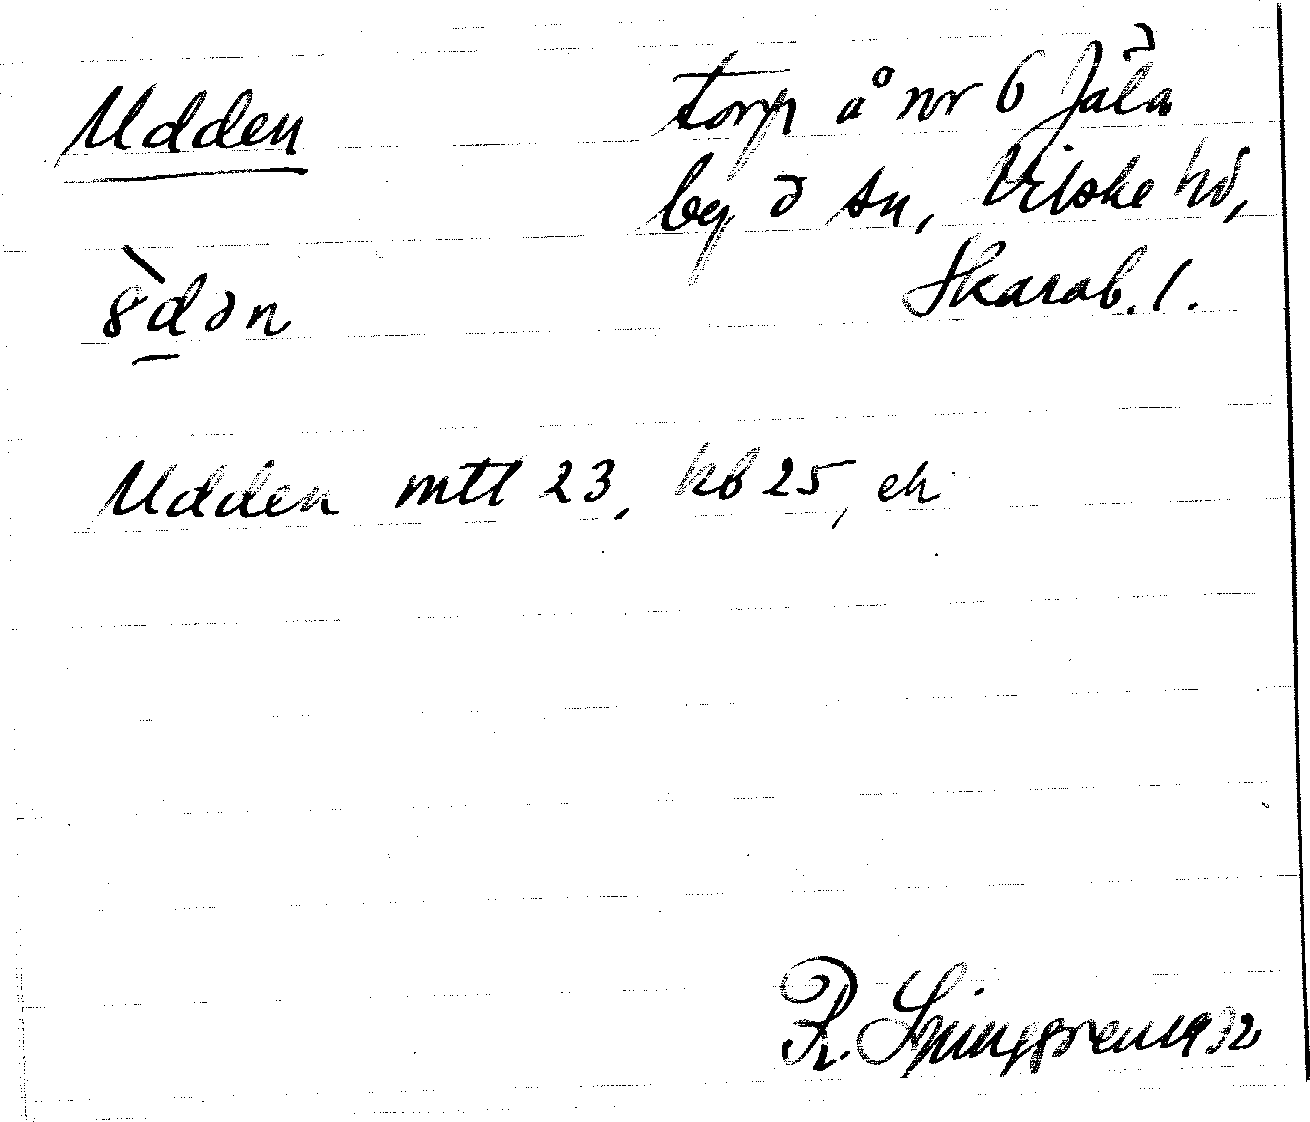 Udden
torp å nr 6 Jäla
by o sn, Vilske hd,
Skarab. l.
8̀d̲ǝn
Udden mtl 23, kb 25, ek
R. Ljunggren 1932